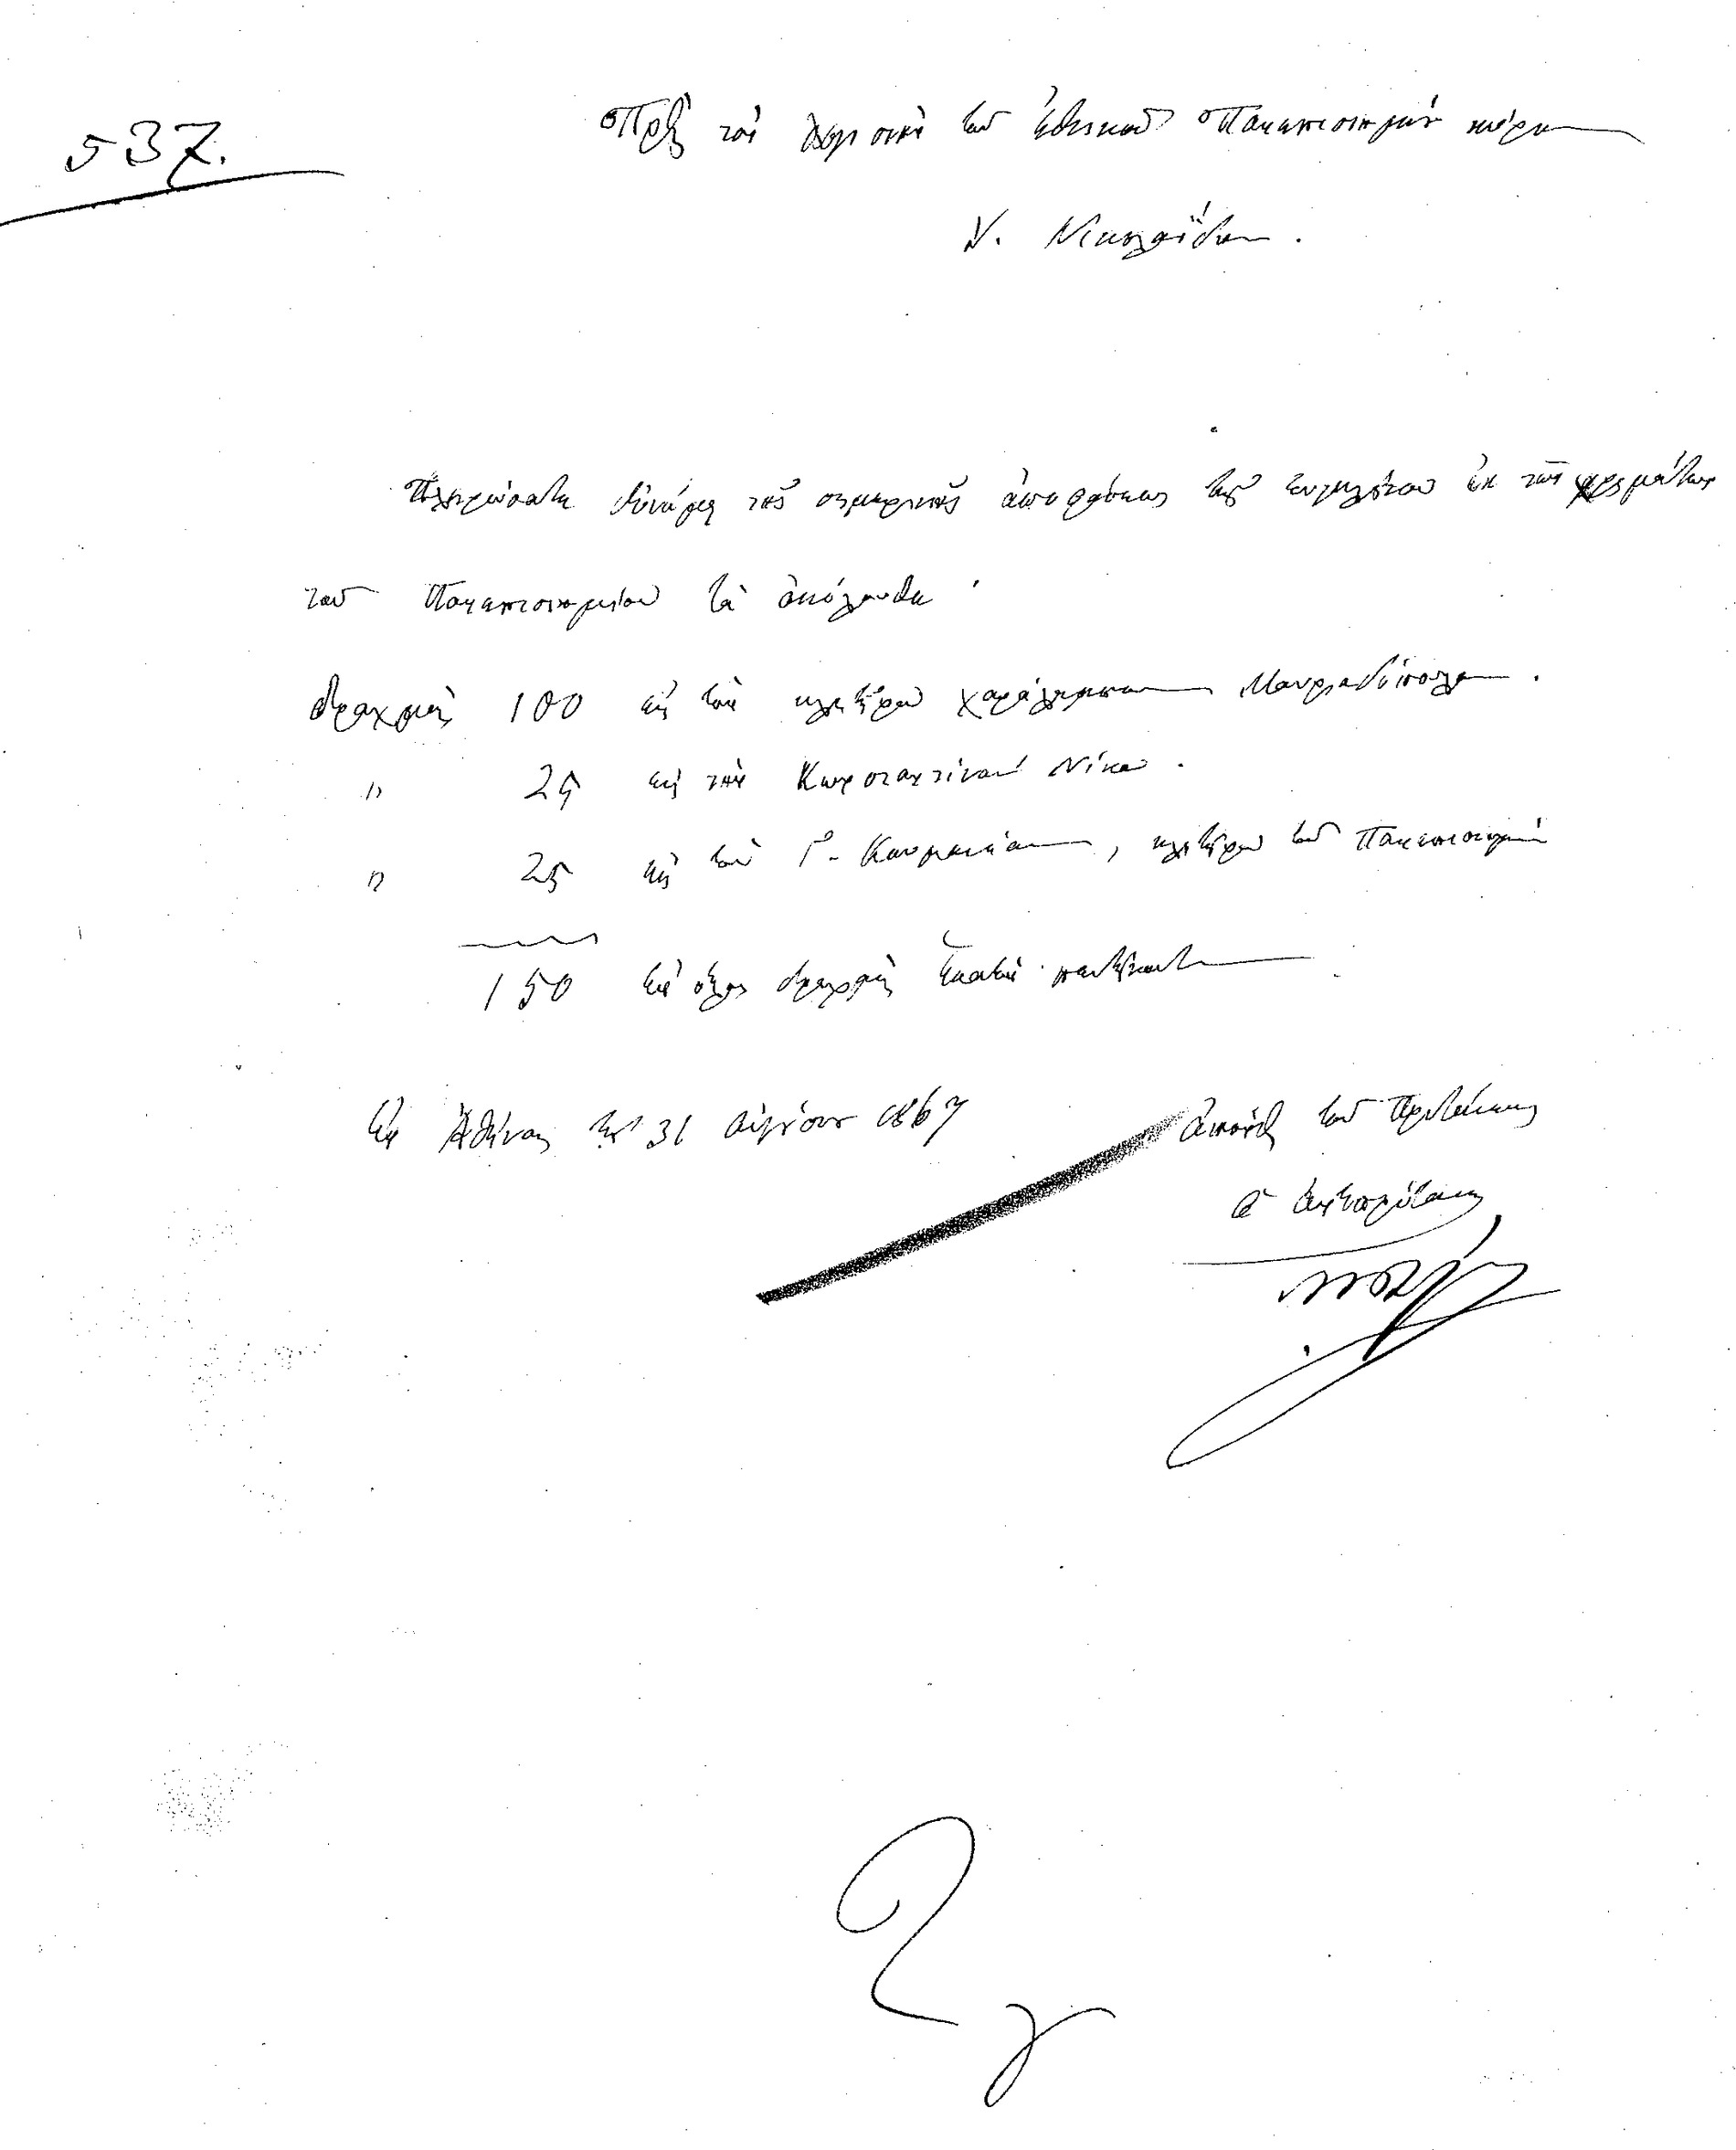 537.
Πρὸς τὸν λογιστὴν τοῦ ἐθνικοῦ Πανεπιστημίου κύριον
Ν. Νικολαΐδην.
Πληρώσατε δυνάμει τῆς σημερινῆς ἀποφάσεως τῆς συγκλήτου ἐκ τῶν χρημάτων
τοῦ Πανεπιστημίου τὰ ἀκόλουθα·
δραχμὰς 100 εἰς τὸν κλητῆρα Χαράλαμπον
" 25 εἰς τὸν Κωνσταντῖνον Νίκου.
" 25 εἰς τὸν Γ. κλητῆρα τοῦ Πανεπιστημίου
150 ἐν ὅλῳ δραχμὰς ἑκατὸν πεντήκοντα
Ἐν Ἀθήναις τῇ 31 Αὐγούστου 1867
ἀπόντος τοῦ Πρυτάνεως
ὁ ἀντιπρύτανις